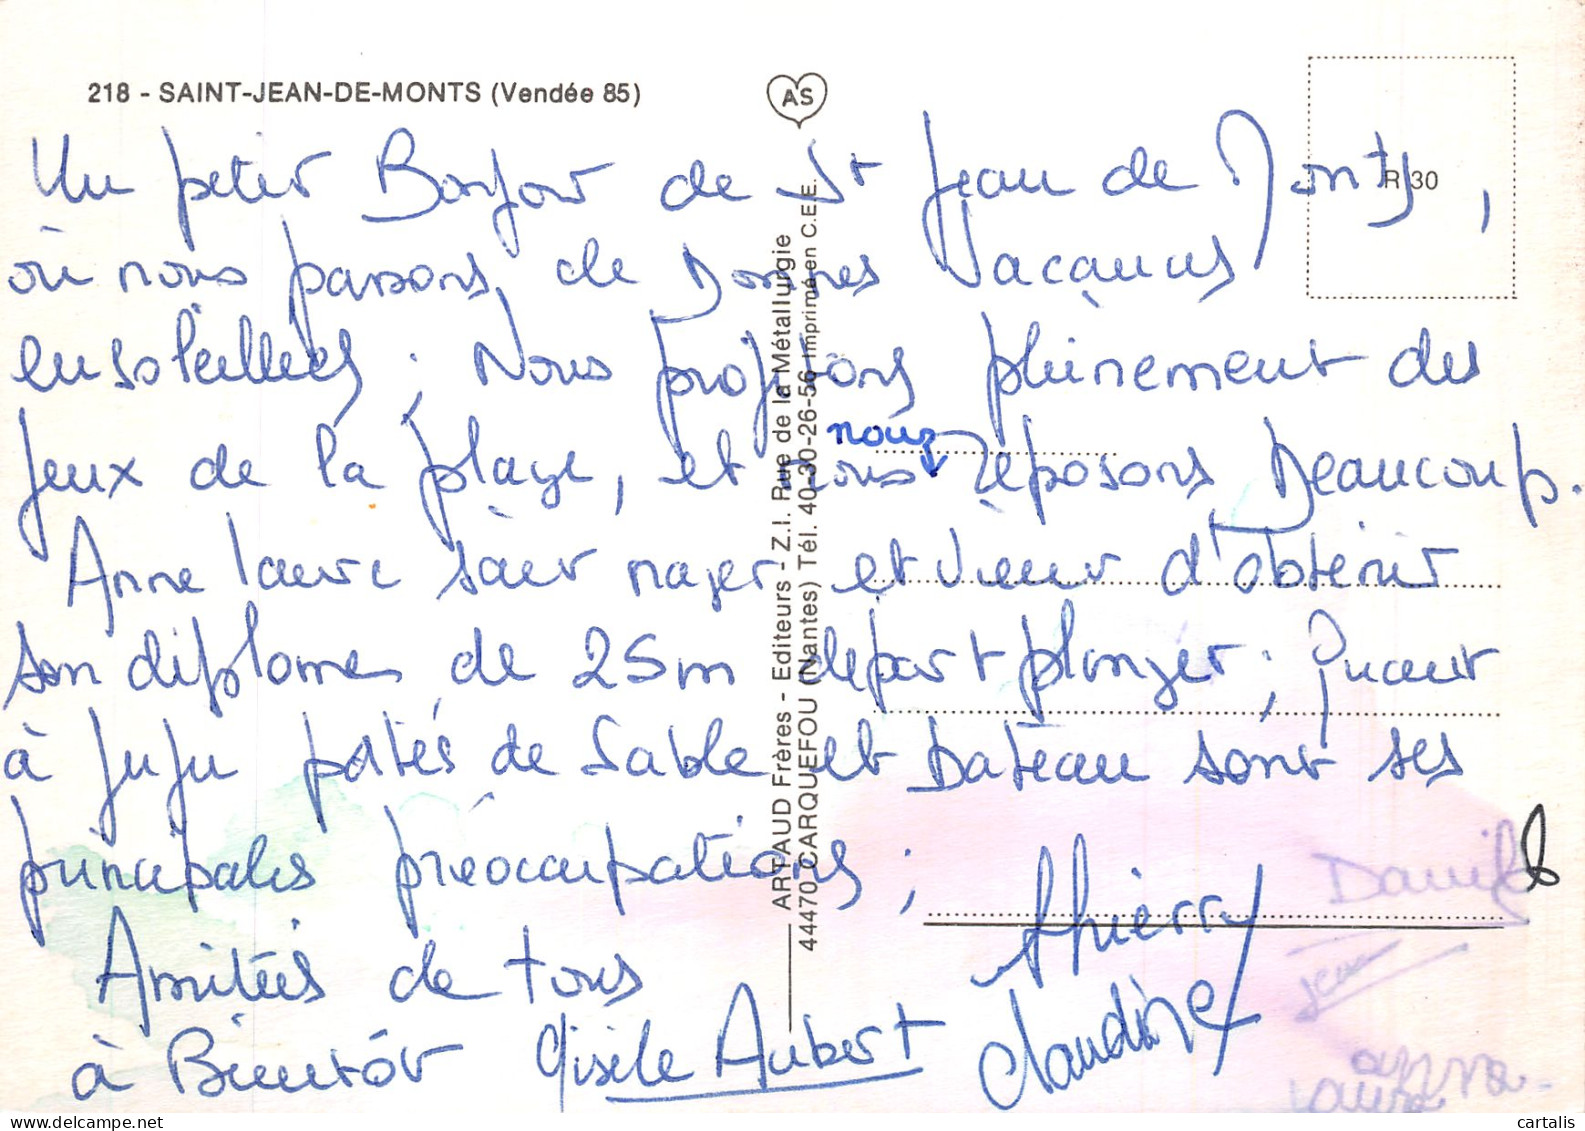 218 - SAINT-JEAN-DE-MONTS (Vendée 85)
AS
R 30
Un petit Bonjour de St Jean de Monts,
où nous passons de Bonnes Vacances
ensoleillées ; Nous profitons pleinement des
nous
Jeux de la plage, et nous reposons Beaucoup.
Anne laure sait nager et vient d'obtenir
son diplome de 25m départ plonger ; Quant
à Juju patés de Sable et Bateau sont ses
principales préoccupations ;
Amitiés de tous
à Bientôt Gisèle Aubert
thierry
claudine
Daniel
Jean
anna
laura
ARTAUD Frères - Editeurs - Z.I. Rue de la Métallurgie
44470 CARQUEFOU (Nantes) Tél. 40-30-26-56 Imprimé en C.E.E.
cartalis